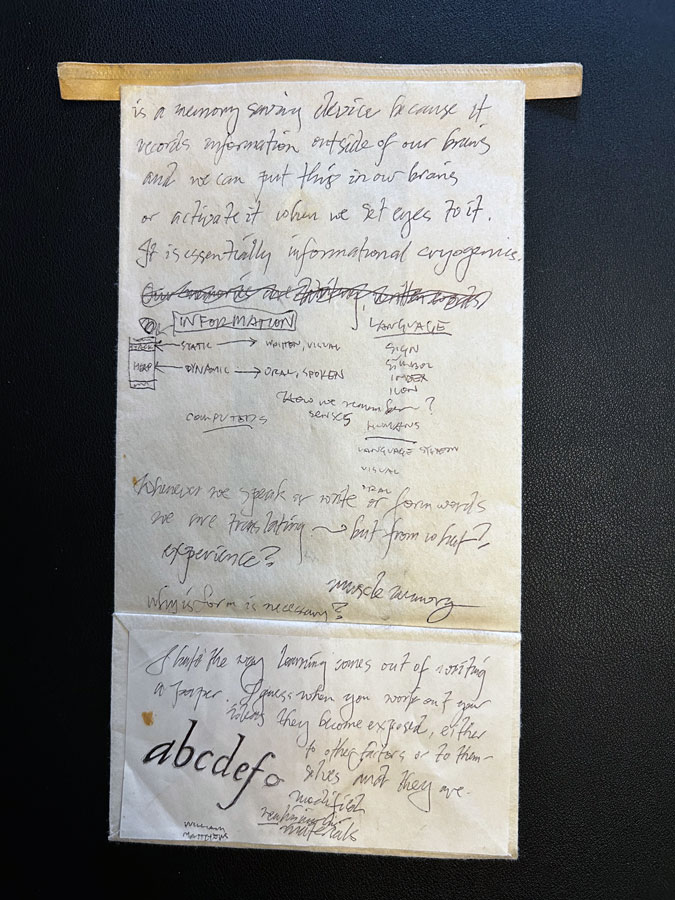 is a memory saving device because it
records information outside of our brains
and we can put this in our brains
or activate it when we set eyes to it.
It is essentially informational cryogenics.
INFORMATION
LANGUAGE
STATIC → WRITTEN, VISUAL
SIGN
SYMBOL
HEAP DYNAMIC → ORAL, SPOKEN
INDEX
ICON
How we remember?
senses
COMPUTERS
HUMANS
LANGUAGE SYSTEM
VISUAL
ORAL
Whenever we speak or write or form words
we are translating → but from what?
experience?
muscle memory
why is form is necessary?
I the way learning comes out of writing
a paper. I guess when you work out your
ideas they become exposed, either
to other factors or to them-
selves and they are
modified
abcdefg
materials
WILLIAM
MATTHEWS